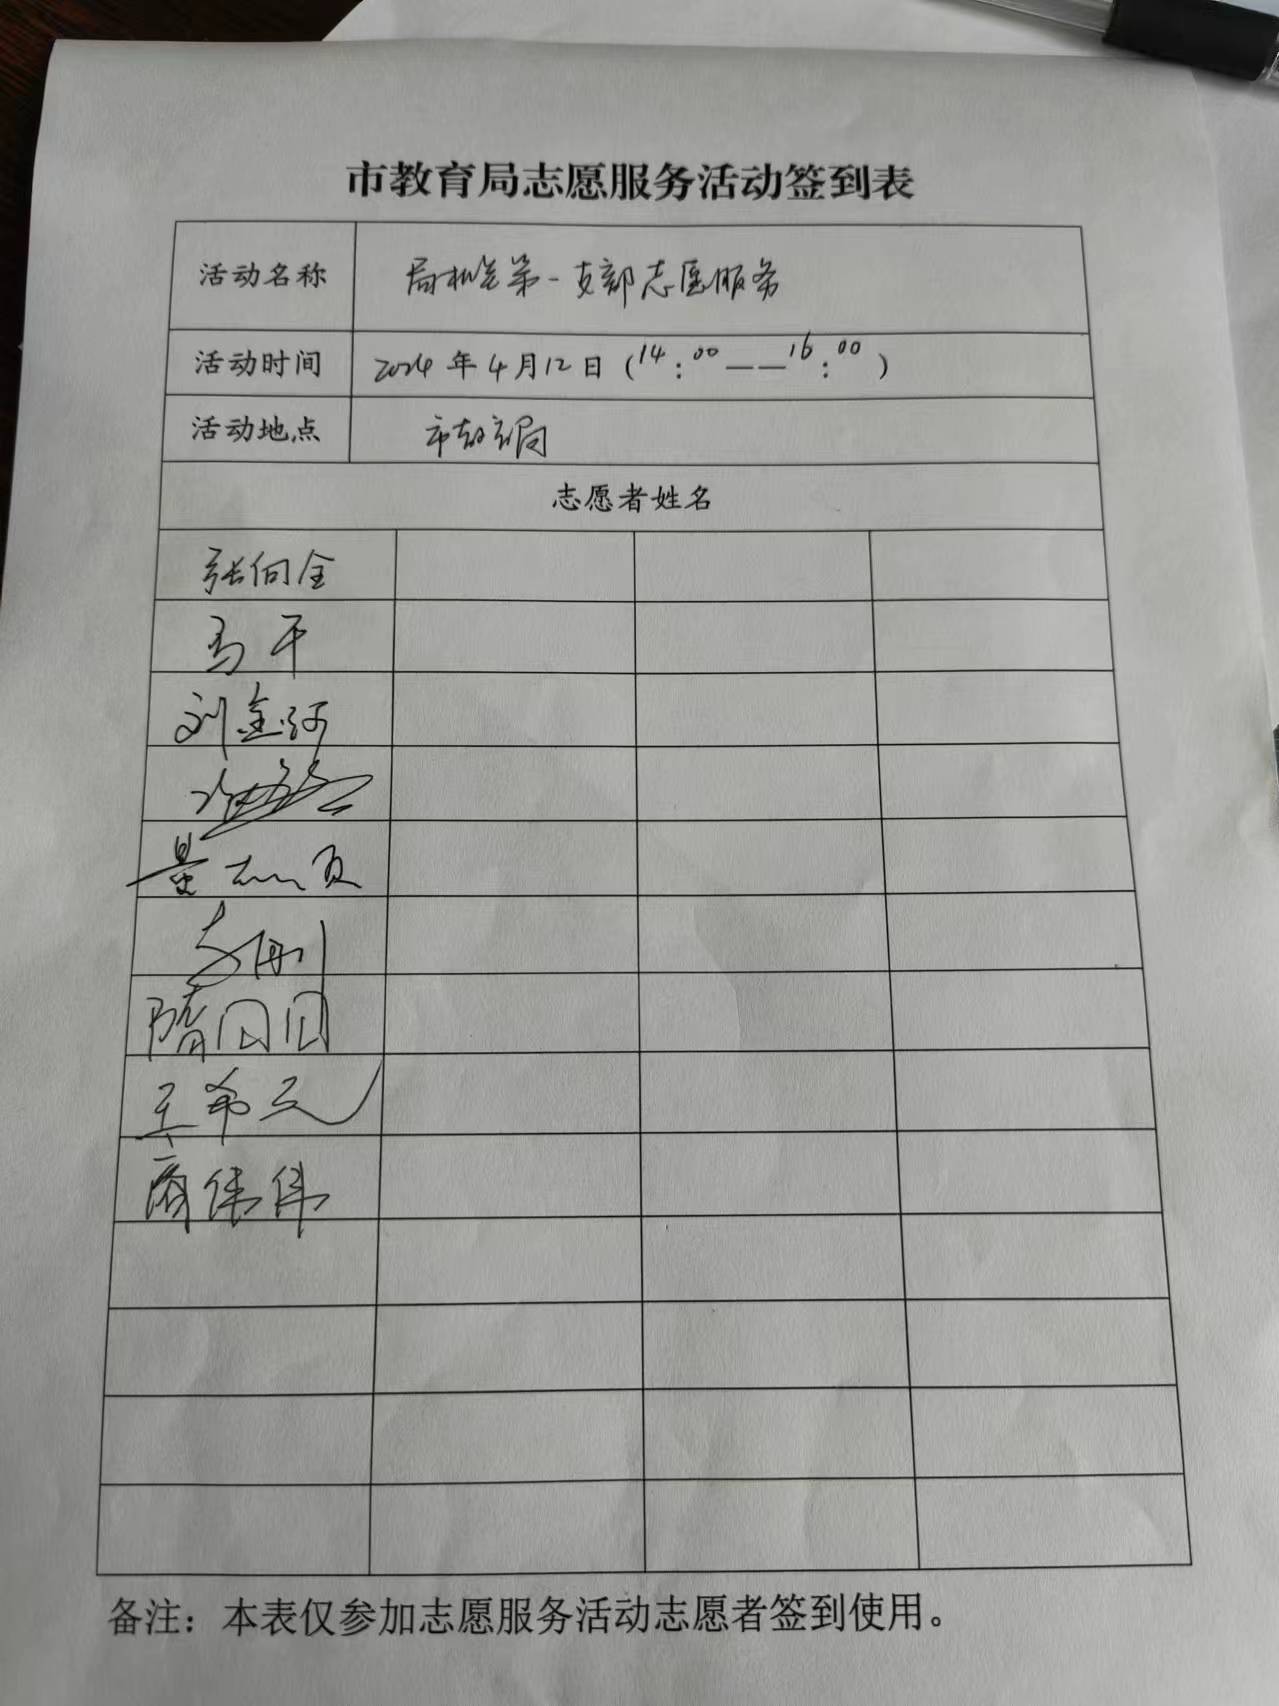 市教育局志愿服务活动签到表
活动名称 局机关第一支部志愿服务
活动时间 2024年4月12日(14:00——16:00)
活动地点 市教育局
志愿者姓名
张向全
马干
刘金河
景志页
隋囝囝
王希文
商伟伟
备注：本表仅参加志愿服务活动志愿者签到使用。